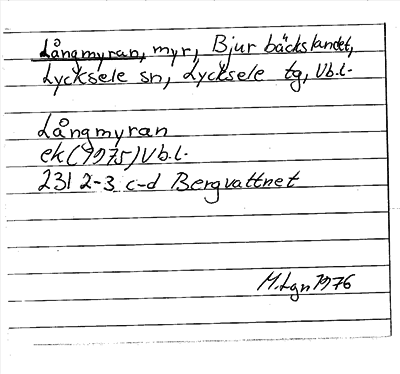 Långmyran, myr, Bjurbäckslandet,
Lycksele sn, Lycksele tg, Vb.l.
Långmyran
ek (1975) Vb.l.
231 2-3 c-d Bergvattnet
M.Lgn 1976